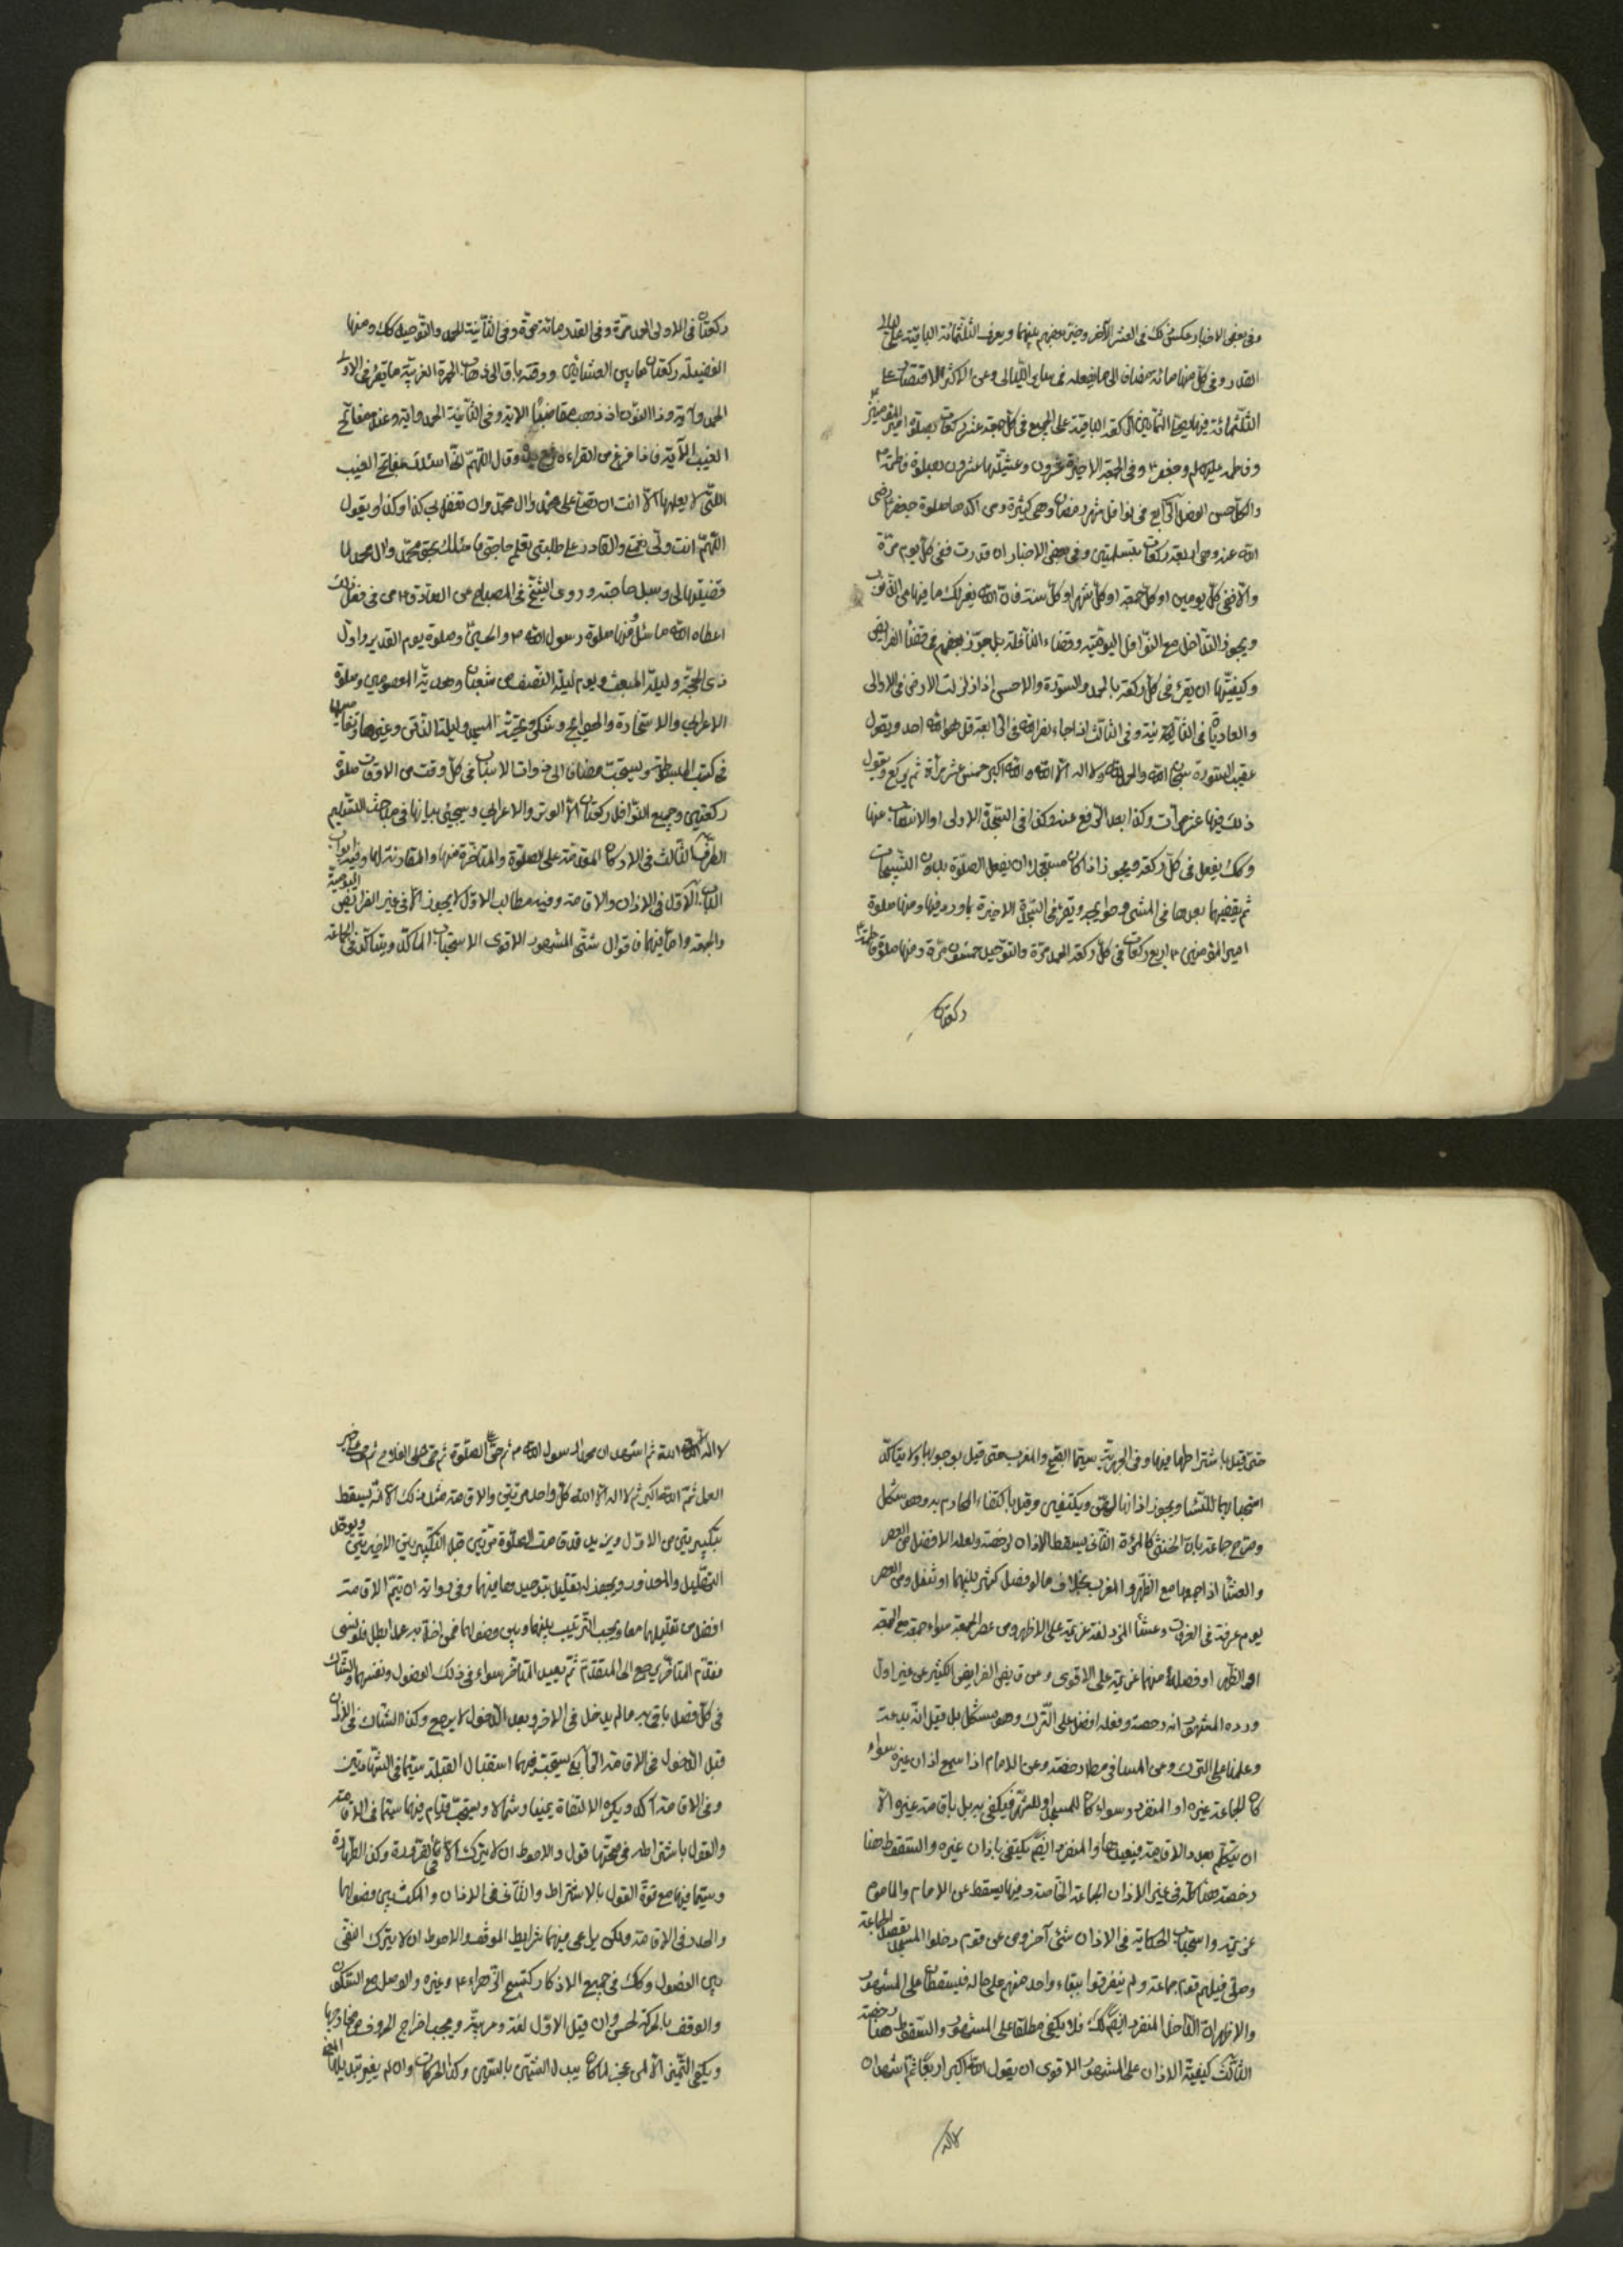 وفى بعض الاخبار عكس ذلك فى العشر الآخر وخير بعضهم بينهما ويعرف الثلثمائة الباقية على ليالى
القدر وفى كل منها مائة مضاف الى ما يفعله فى سائر الليالى وعن الاكثر الاقتصار على
الثلثمائة فيها الثمانين ركعة الباقية على الجمع فى كل جمعة عشر ركعات بصلوة امير المؤمنين
وفاطمة عليهم وجعفر وفى الجمعة الاخيرة عشرون وعشيتها عشرون بصلوة فاطمة
والكل حسن الفصل الرابع فى نوافل شهر رمضان وهى كثيرة ومن اكدها صلوة جعفر رضى
الله عنه وهى اربعة ركعات بتسليمتين وفى بعض الاخبار ان قدرت ففى كل يوم مرة
والا ففى كل يومين او كل جمعة او كل شهر او كل سنة فان الله يغفر لك ما فيها من الذنوب
ويجوز التداخل مع النوافل اليومية وقضاء النافلة بل جوز بعضهم فى قضاء الفرايض
وكيفيتها ان يقرء فى كل ركعة بالحمد والسورة والاحسن اذا زلزلت الارض فى الاولى
والعاديات فى الثانية وفى الثالث اذا جاء نصر الله فى الرابعة قل هو الله احد ويقول
عقيب السورة سبحان الله والحمد لله ولا اله الا الله والله اكبر خمس عشر مرة ثم يركع ويقول
ذلك فيها عشر مرات وكذا بعد الرفع عنه وكذا فى السجدة الاولى او الانتصاب عنها
وكك يفعل فى كل ركعة ويجوز اذا كان مستعجلا ان يفعل الصلوة بدون التسبيحات
ثم يقضيها بعدها فى المشى وحوايجه ويقرء فى السجدة الاخيرة ما ورد فيها ومنها صلوة
امير المؤمنين اربع ركعات فى كل ركعة الحمد مرة والتوحيد خمسون مرة ومنها صلوة فاطمة
ركعتان
ركعتان فى الاولى الحمد مرة وفى القدر مائة مرة وفى الثانية الحمد والتوحيد كك ومنها
الغفيلة ركعتان ما بين العشائين ووقته باق الى ذهاب الحمرة الغربية ما يقرء فى الاولى
الحمد وآية وذا النون اذ ذهب مغاضبا الآية وفى الثانية الحمد وآية وعنده مفاتح
الغيب الآية فاذا فرغ من القراءة رفع يديه وقال اللهم انى اسئلك بمفاتح الغيب
التى لا يعلمها الا انت ان تصلى على محمد وآل محمد وان تفعل بى كذا وكذا ويقول
اللهم انت ولى نعمتى والقادر على طلبتى تعلم حاجتى فاسئلك بحق محمد وآل محمد لما
قضيتها لى وسئل حاجته وروى الشيخ فى المصباح عن الصادق من فعل ذلك
اعطاه الله ما سئل ومنها صلوة رسول الله والحسين وصلوة يوم الغدير واول
ذى الحجة وليلة المبعث ويوم ليلة النصف من شعبان وهدية المعصومين وصلوة
الاعرابى والاستخارة والحوايج وشكر وتحية المسجد وليلة الدفن وغيرها وتفاصيلها
فى كتب المبسوطة ويستحب مضافا الى ذوات الاسباب فى كل وقت من الاوقات صلوة
ركعتين وجميع النوافل ركعتان الا الوتر والاعرابى وسيجئ بيانها فى مباحث التسليم
الطرف الثالث فى الاركان المقدمة على الصلوة والمتاخرة منها والمقارنة لها وفيه ابواب
الباب الاول فى الاذان والاقامة وفيه مطالب الاول لا يجوز الا فى غير الفرائض اليومية
والجمعة واما فيها فاقوال شتى المشهور الاقوى الاستحباب الماكد ويتاكد فى الجماعة
حتى قيل باشتراطها فيها وفى الجهرية سيما الصبح والمغرب حتى قيل بوجوبها ولا يتاكد
استحبابهما للنساء ويجوز اذانها لهن ويكتفين وقيل باكتفاء المحارم به وهو مشكل
وصرح جماعة بان الخنثى كالمرئة الثانى يسقط الاذان رخصة ولعله الافضل عن العصر
والعشاء اذا جمعها مع الظهر والمغرب بخلاف ما لو فصل كثير بينهما او تنفل وعن العصر
يوم عرفة فى العرفات وعشاء المزدلفة عزيمة على الاظهر وعن عصر الجمعة سواء جمعه مع الجمعة
او الظهر او فصله منهما عزيمة على الاقوى وعن قاضى الفرايض الكثير عن غير اول
ورده المشهور انه رخصة وفعله افضل على الترك وهو مشكل بل قيل انه بدعة
وعلمنا على الترك وعن المسافر مطلقا رخصة وعن الامام اذا سمع اذان غيره سواء
كان للجماعة غيره او المنفرد وسواء كان للمسجد او للمتمم فيكفى به بل باقامة غيره الا
ان يتكلم بعد الاقامة فيعيدها والمنفرد ايضا يكتفى باذان غيره والسقوط هنا
رخصة هذا كله فى غير الاذان الجماعة الخاصة وفيها يسقط عن الامام والماموم
عزيمة واستحباب الحكاية فى الاذان شئ آخر وعن قوم دخلوا المسجد بقصد الجماعة
وصلى فيهم قوم جماعة ولم يتفرقوا ببقاء واحد منهم على حاله فيسقطان على المشهور
والاظهر ان الداخل المنفرد ايضا كك فلا يكفى مطلقا على المشهور والسقوط هنا رخصة
الثالث كيفية الاذان على المشهور الاقوى ان يقول الله اكبر اربعا ثم اشهد ان
لا اله
لا اله الا الله ثم اشهد ان محمدا رسول الله ثم حى على الصلوة ثم حى على الفلاح ثم حى على خير
العمل ثم الله اكبر ثم لا اله الا الله كل واحد مرتين والاقامة مثل ذلك الا انه يسقط
تكبيرتين من الاول ويزيد قد قامت الصلوة مرتين قبل التكبيرتين الاخيرتين
التهليل والمعذور ويجوز له تقليل بتوحيد ما فيهما وفى رواية ان يتم الاقامة
افضل من تقليلهما معا ويجب الترتيب بينهما وبين فصولهما فمن اخل به عمدا بطل فلو نسى
فقدم المتاخر يرجع الى المتقدم ثم يعيد المتاخر سواء فى ذلك الفصول ونفسهما والشاك
فى كل فصل ياتى به ما لم يدخل فى الاخر وبعد الدخول لا يرجع وكذا الشاك فى الاذان
قبل الدخول فى الاقامة الرابع يستحب فيهما استقبال القبلة سيما فى الشهادتين
وفى الاقامة اكد ويكره الالتفات يمينا وشمالا ويستحب قيام فيهما سيما فى الاقامة
والقول باشتراطه فى صحتها قول والاحوط ان لا يترك الا فى الضرورة وكذا الطهارة
وسيما فيها مع قوة القول بالاشتراط والتانى فى الاذان والمكث بين فصولها
والحدر فى الاقامة ولكن يراعى فيهما شرايط الموقف والاحوط ان لا يترك النفس
بين الفصول وكك فى جميع الاذكار كتسبيح الزهراء وغيره والوصل مع السكون
والوقف بالحركة لحن وان قيل الاول لغة وعربية ويجب اخراج الحروف من مخارجها
ويكفى التمييز الا لمن عجز كما كان يبدل الشين بالسين وكذا الحركات وان لم يغير تبديلها المعنى